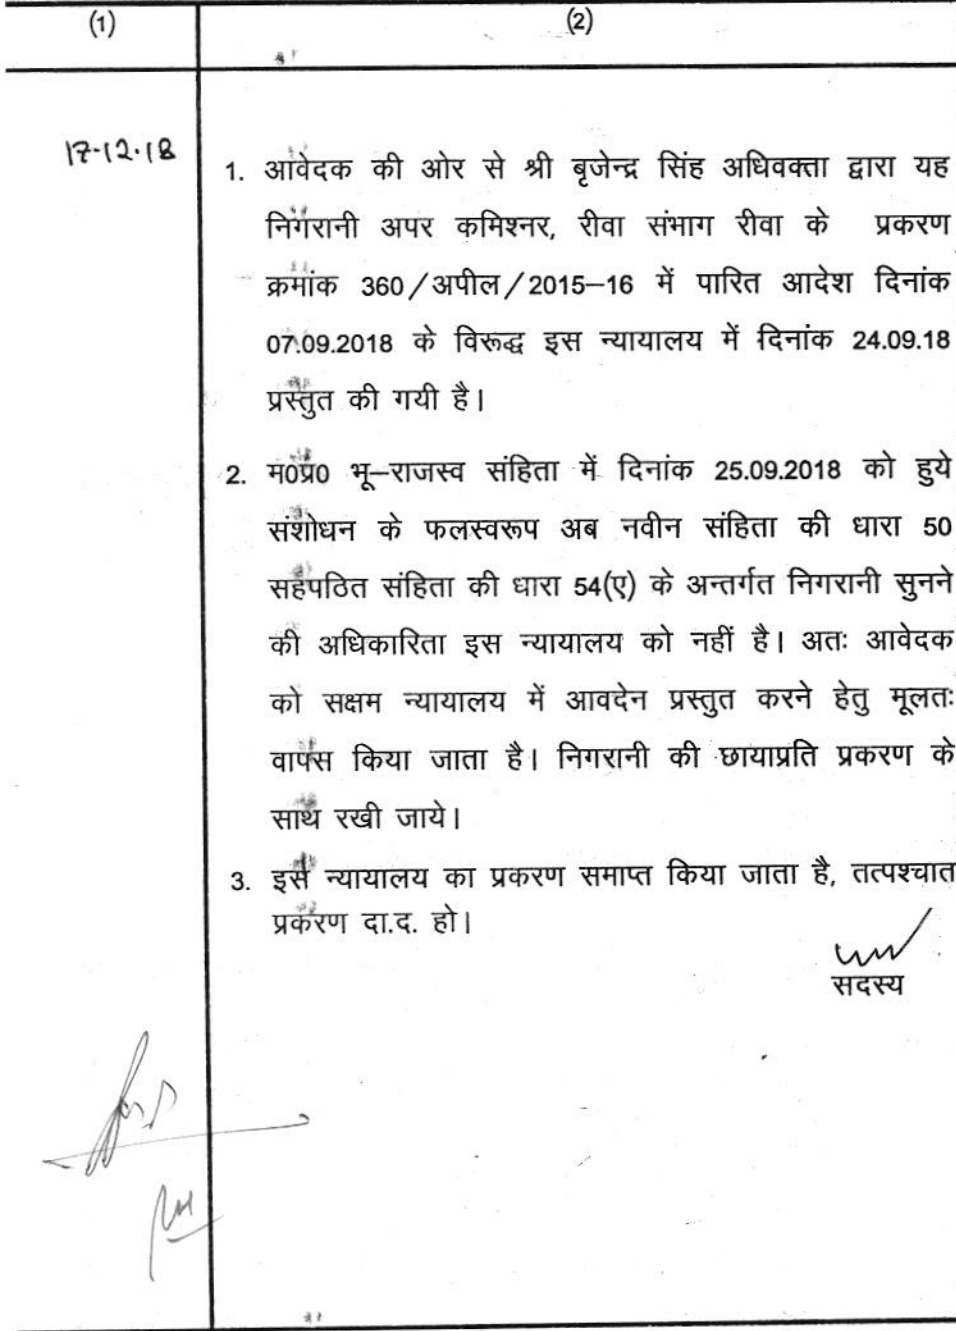 (1) (2)
17.12.18
1. आवेदक की ओर से श्री बृजेन्द्र सिंह अधिवक्ता द्वारा यह
निगरानी अपर कमिश्नर, रीवा संभाग रीवा के प्रकरण
क्रमांक 360/अपील/2015–16 में पारित आदेश दिनांक
07.09.2018 के विरूद्ध इस न्यायालय में दिनांक 24.09.18
प्रस्तुत की गयी है।
2. म0प्र0 भू–राजस्व संहिता में दिनांक 25.09.2018 को हुये
संशोधन के फलस्वरूप अब नवीन संहिता की धारा 50
सहपठित संहिता की धारा 54(ए) के अन्तर्गत निगरानी सुनने
की अधिकारिता इस न्यायालय को नहीं है। अतः आवेदक
को सक्षम न्यायालय में आवदेन प्रस्तुत करने हेतु मूलतः
वापस किया जाता है। निगरानी की छायाप्रति प्रकरण के
साथ रखी जाये।
3. इस न्यायालय का प्रकरण समाप्त किया जाता है, तत्पश्चात
प्रकरण दा.द. हो।
सदस्य